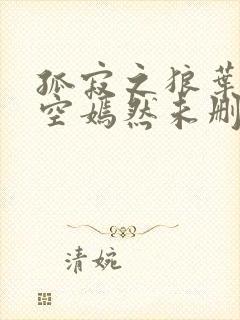 孤寂之狼葉
空嫣然未删
清婉